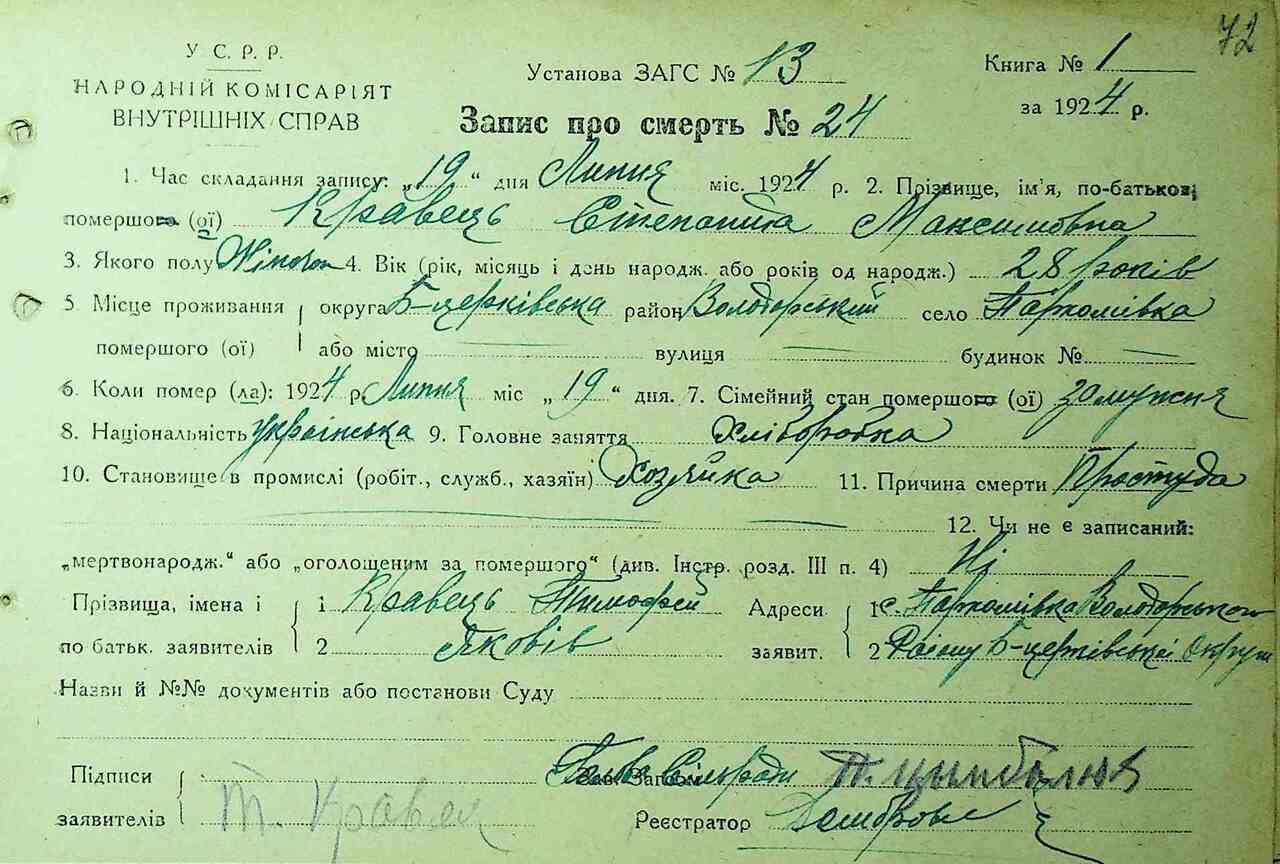 72
У С. Р. Р.
НАРОДНІЙ КОМІСАРІЯТ
ВНУТРІШНІХ СПРАВ
Установа ЗАГС № 13
Книга № 1
за 1924 р.
Запис про смерть № 24
1. Час складання запису: „19“ дня Липня міс. 1924 р. 2. Прізвище, ім’я, по-батькові
помершого (ої) Кравець Степанида Максимовна
3. Якого полу Жіночого 4. Вік (рік, місяць і день народж. або років од народж.) 28 років
5 Місце проживання округа Б-церківська район Володарський село Пархомівка
помершого (ої) або місто вулиця будинок №
6. Коли помер (ла): 1924 р. Липня міс „19“ дня. 7. Сімейний стан помершого (ої) замужня
8. Національність українська 9. Головне заняття хліборобка
10. Становище в промислі (робіт., служб., хазяїн) Хозяйка 11. Причина смерти Простуда
12. Чи не є записаний:
„мертвонародж.“ або „оголошеним за помершого“ (див. Інстр. розд. III п. 4) Ні
Прізвища, імена і 1 Кравець Тимофей Адреси 1 с. Пархомівка Володарського
по батьк. заявителів 2 Яковів заявит. 2 Району Б-церківської Округи
Назви й №№ документів або постанови Суду
Підписи Голова Сільради Зав. Загсом П. Цимбалюк
заявителів Т. Кравец Реєстратор